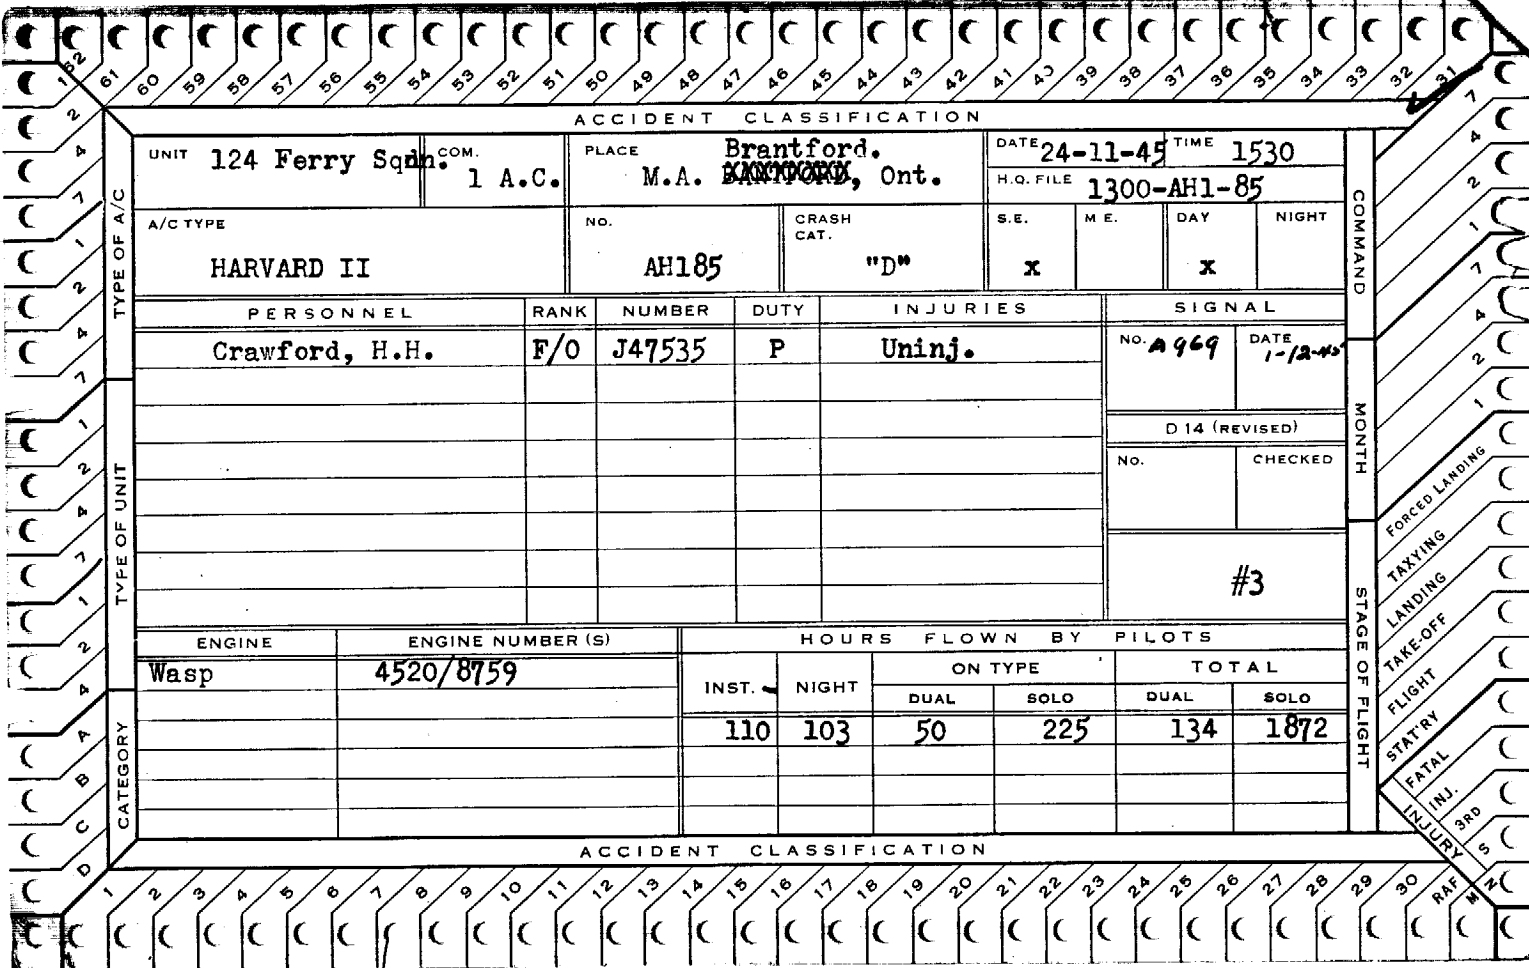 62 61 60 59 58 57 56 55 54 53 52 51 50 49 48 47 46 45 44 43 42 41 40 39 38 37 36 35 34 33 32 31
ACCIDENT CLASSIFICATION
UNIT 124 Ferry Sqdn. COM. 1 A.C. PLACE Brantford. M.A. BANTFORD, Ont. DATE 24-11-45 TIME 1530
H.Q. FILE 1300-AH1-85
A/C TYPE HARVARD II NO. AH185 CRASH CAT. "D" S.E. x M E. DAY x NIGHT
PERSONNEL RANK NUMBER DUTY INJURIES SIGNAL
Crawford, H.H. F/O J47535 P Uninj. NO. A969 DATE 1-12-45
D 14 (REVISED)
NO. CHECKED
#3
ENGINE ENGINE NUMBER (S) HOURS FLOWN BY PILOTS
Wasp 4520/8759
INST. NIGHT ON TYPE TOTAL
DUAL SOLO DUAL SOLO
110 103 50 225 134 1872
ACCIDENT CLASSIFICATION
1 2 3 4 5 6 7 8 9 10 11 12 13 14 15 16 17 18 19 20 21 22 23 24 25 26 27 28 29 30 RAF M N
TYPE OF A/C
1 2 4 7 1 2 4 7
TYPE OF UNIT
1 2 4 7 1 2 4
CATEGORY
A B C D
COMMAND
7 4 2 1
MONTH
7 4 2 1
STAGE OF FLIGHT
FORCED LANDING
TAXYING
LANDING
TAKE-OFF
FLIGHT
STAT'RY
INJURY
FATAL
INJ.
3RD
S